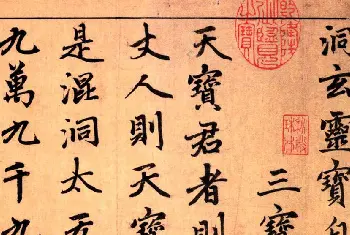 洞玄靈寶自
三寶
天寶君者則
丈人則天寶
是混洞太无
九萬九千九